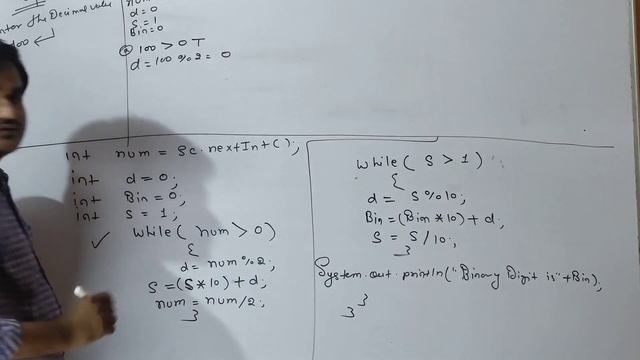 Enter the Decimal value
100 ↵
d = 0
S = 1
Bin = 0
① 100 > 0 T
d = 100 % 2 = 0
int num = sc.nextInt();
int d = 0;
int Bin = 0;
int S = 1;
✓ while( num > 0)
{
d = num % 2;
S = (S * 10) + d;
num = num/2;
}
while( S > 1)
{
d = S % 10;
Bin = (Bin * 10) + d;
S = S / 10;
}
System.out.println("Binary Digit is" + Bin);
}
}